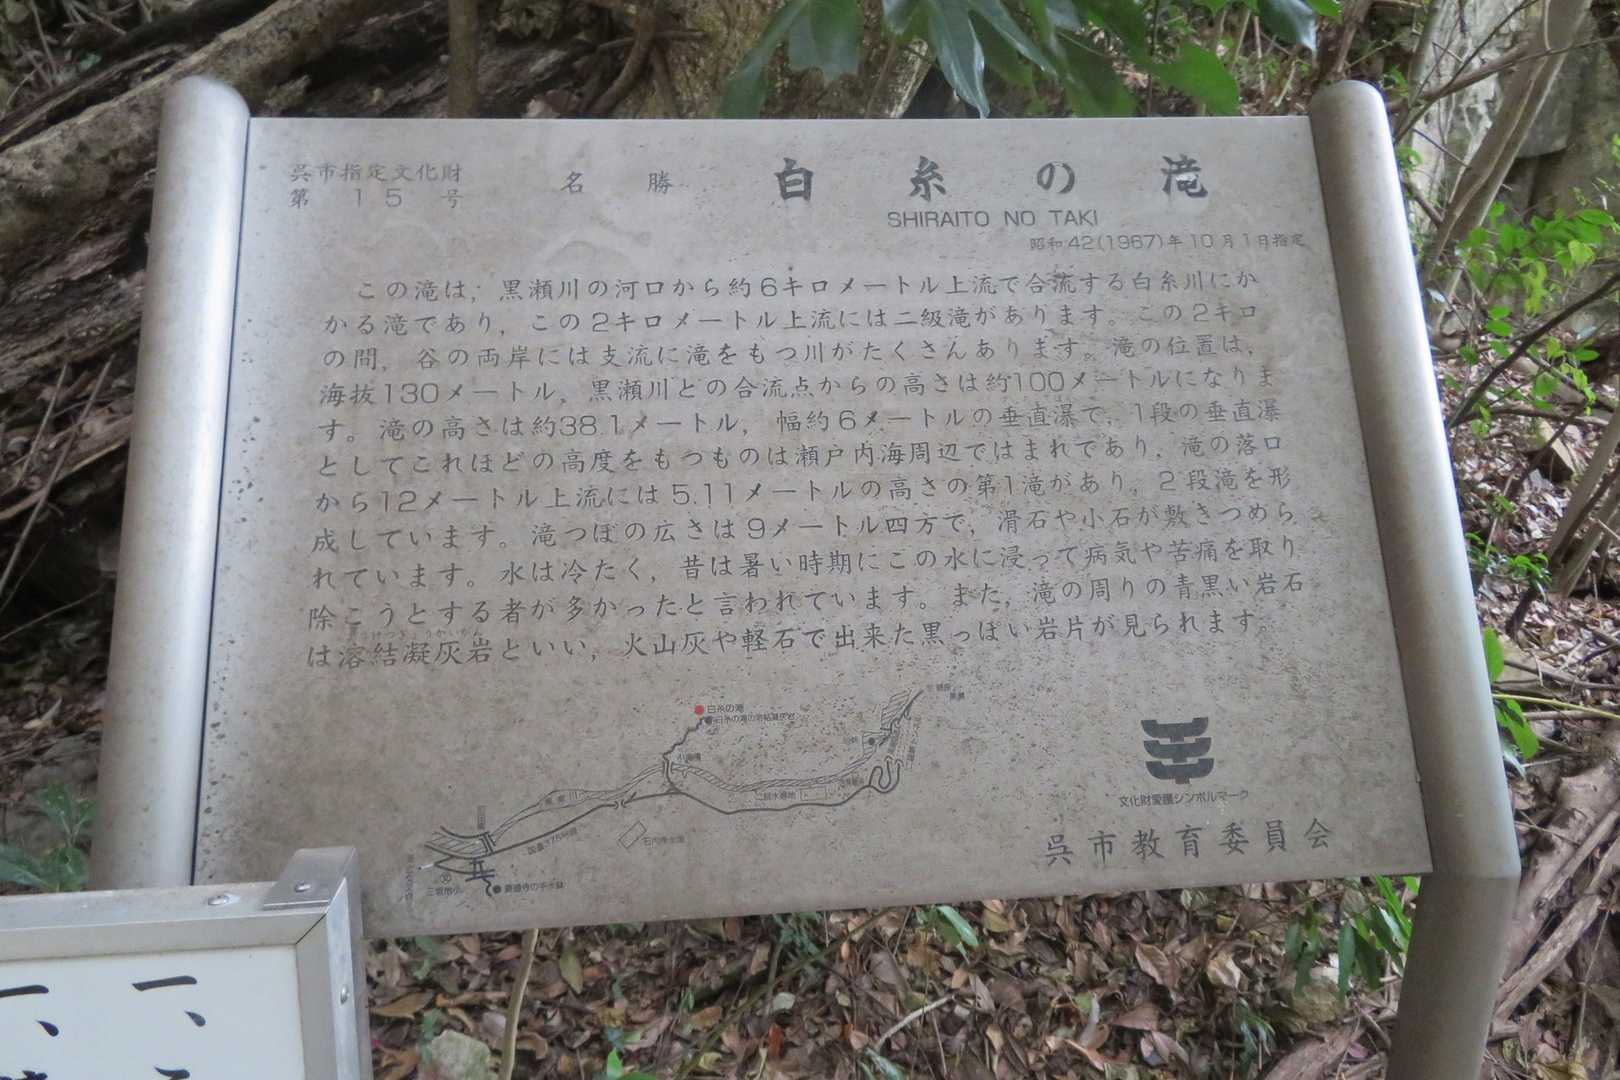 呉市指定文化財
第 15 号
名 勝
白 糸 の 滝
SHIRAITO NO TAKI
昭和42(1967)年10月1日指定
この滝は，黒瀬川の河口から約6キロメートル上流で合流する白糸川にか
かる滝であり，この2キロメートル上流には二級滝があります。この2キロ
の間，谷の両岸には支流に滝をもつ川がたくさんあります。滝の位置は，
海抜130メートル，黒瀬川との合流点からの高さは約100メートルになりま
す。滝の高さは約38.1メートル，幅約6メートルの垂直瀑で，1段の垂直瀑
としてこれほどの高度をもつものは瀬戸内海周辺ではまれであり，滝の落口
から12メートル上流には5.11メートルの高さの第1滝があり，2段滝を形
成しています。滝つぼの広さは9メートル四方で，滑石や小石が敷きつめら
れています。水は冷たく，昔は暑い時期にこの水に浸って病気や苦痛を取り
除こうとする者が多かったと言われています。また，滝の周りの青黒い岩石
は溶結凝灰岩といい，火山灰や軽石で出来た黒っぽい岩片が見られます。
白糸の滝
白糸の滝の溶結凝灰岩
黒瀬川
文化財愛護シンボルマーク
呉市教育委員会
一、
一、